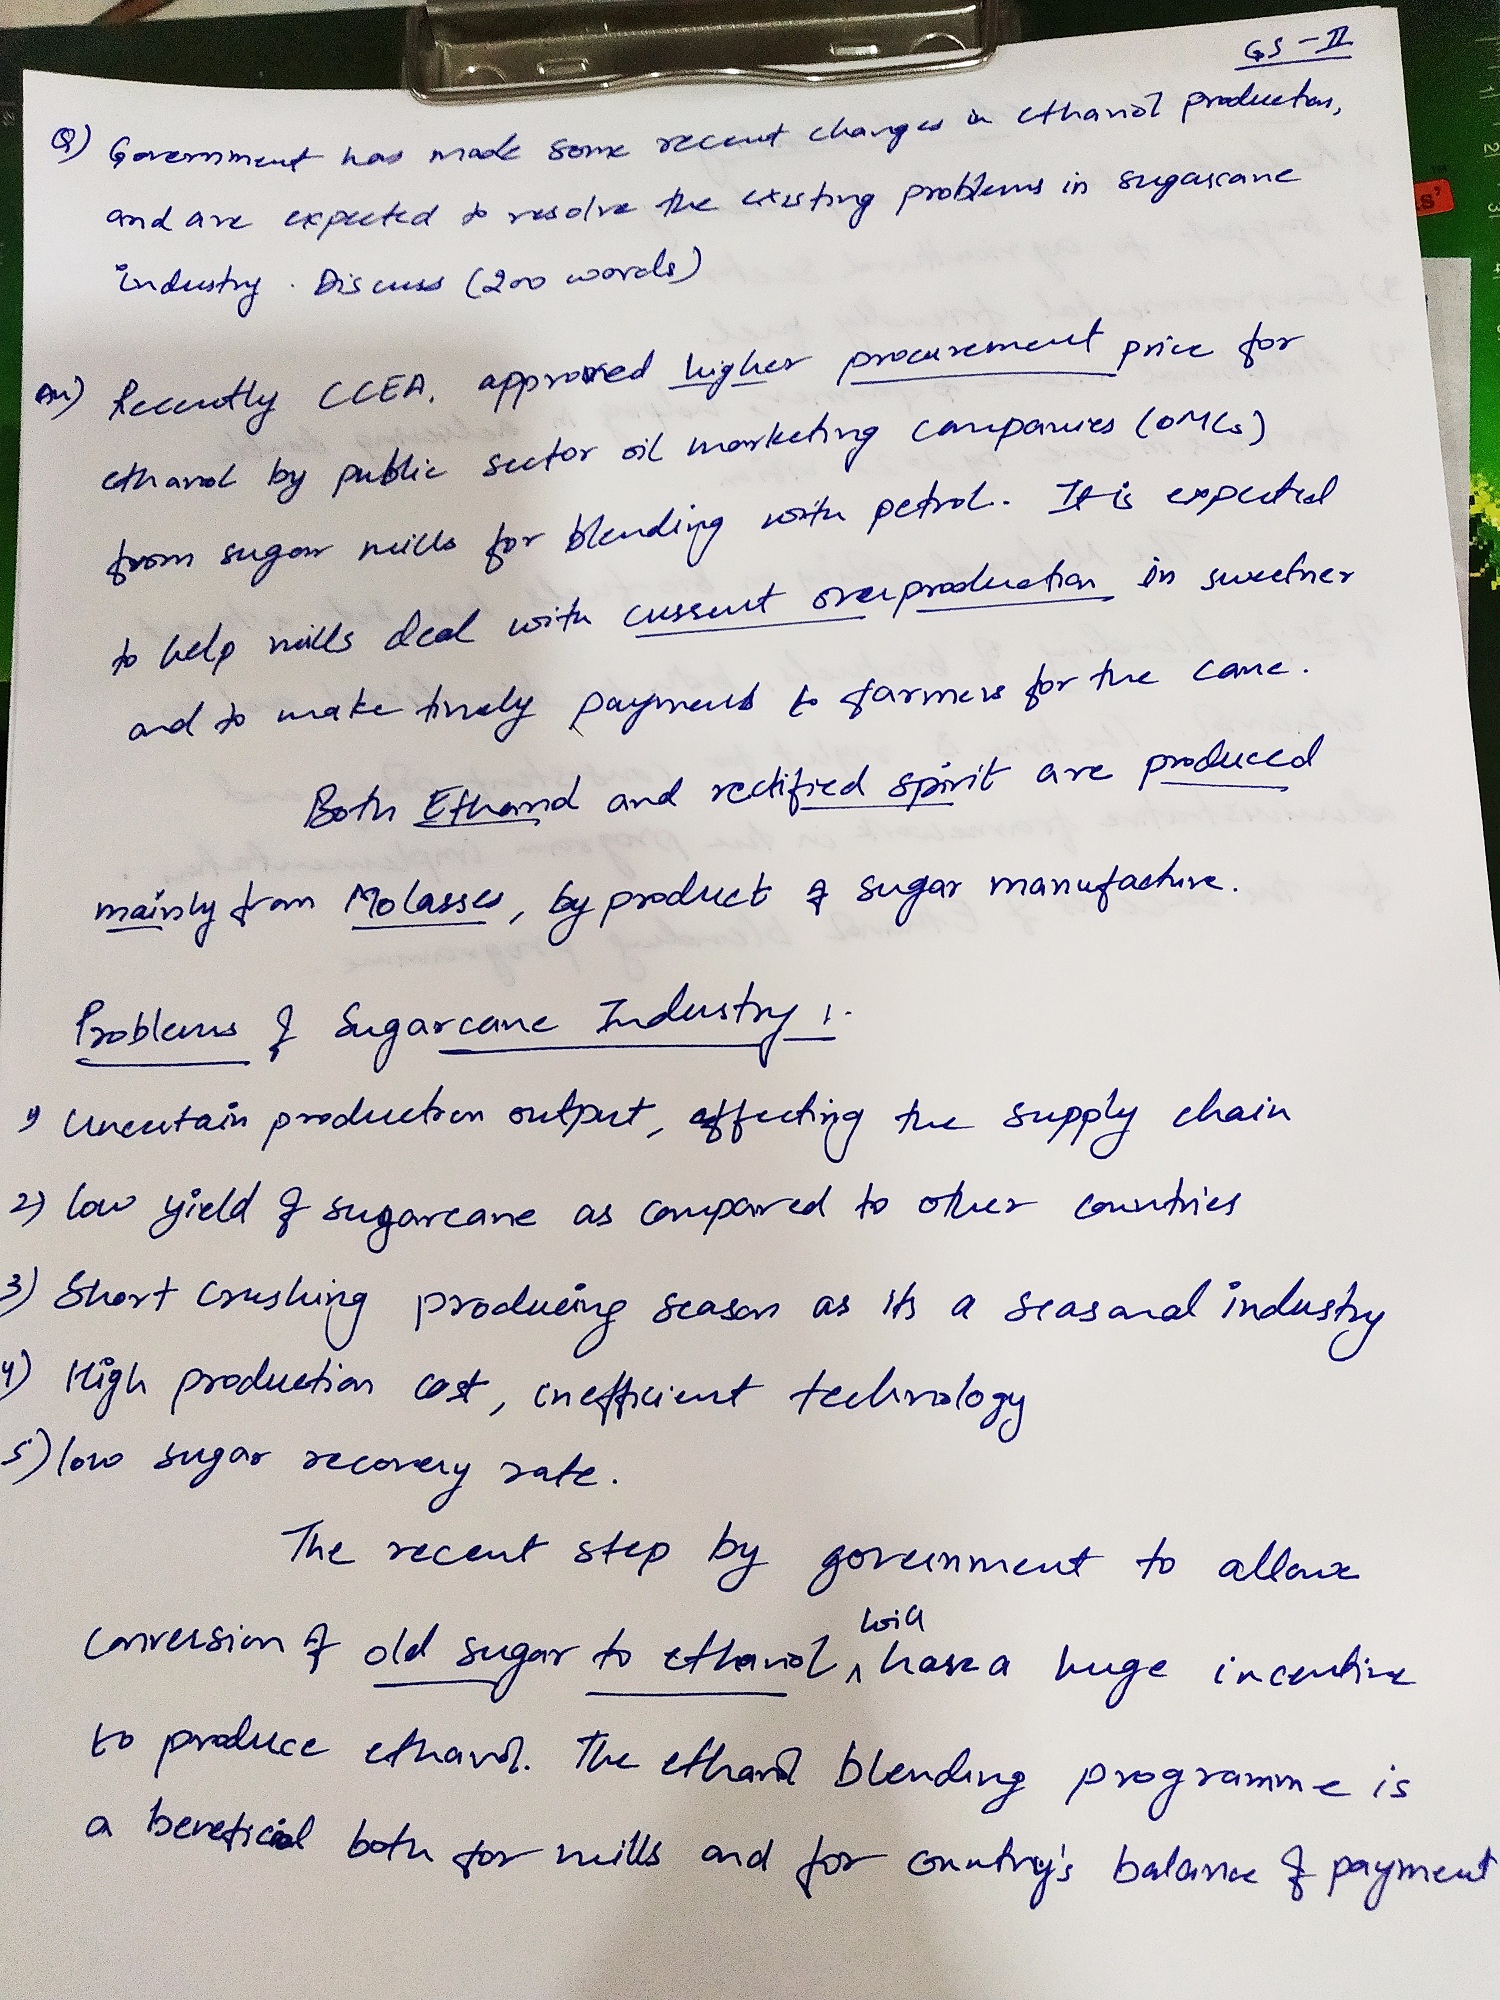 GS-II
Q) Government has made some recent changes in ethanol production,
and are expected to resolve the existing problems in sugarcane
industry. Discuss (200 words)
Ans) Recently CCEA, approved higher procurement price for
ethanol by public sector oil marketing companies (OMCs)
from sugar mills for blending with petrol. It is expected
to help mills deal with current overproduction in sweetner
and to make timely payments to farmers for the cane.
Both Ethanol and rectified spirit are produced
mainly from Molasses, by product of sugar manufacture.
Problems of Sugarcane Industry :-
1) Uncertain production output, affecting the supply chain
2) low yield of sugarcane as compared to other countries
3) Short crushing producing season as its a seasonal industry
4) High production cost, inefficient technology
5) low sugar recovery rate.
The recent step by government to allow
conversion of old sugar to ethanol, will have a huge incentive
to produce ethanol. The ethanol blending programme is
a beneficial both for mills and for country's balance of payment